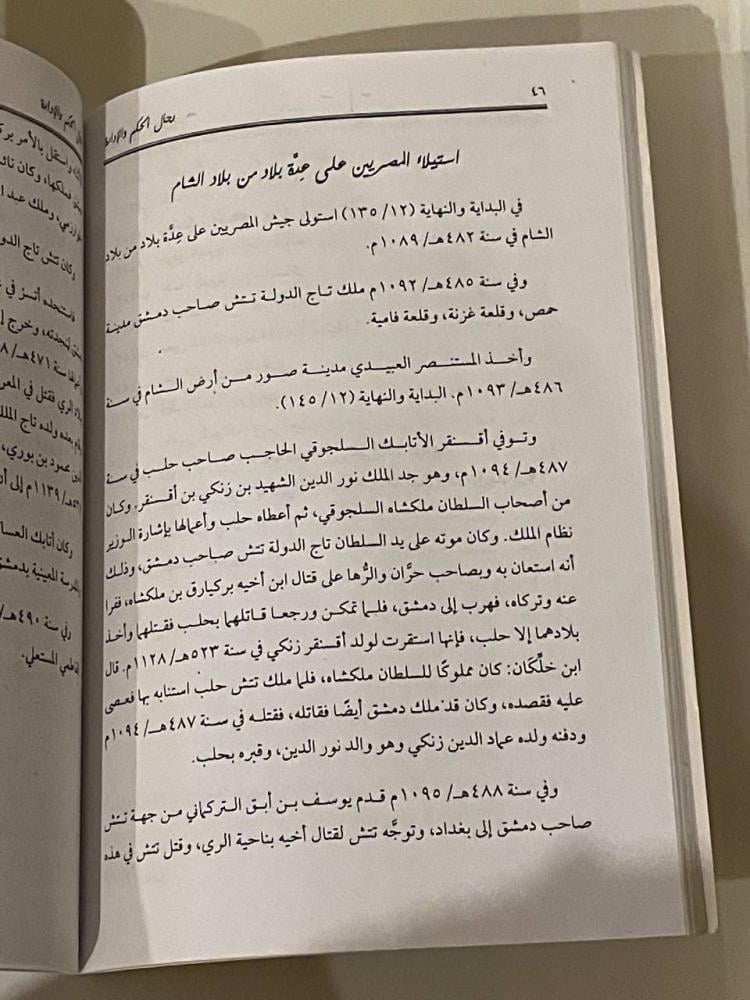 ٤٦
رجال الحكم والإدارة
استيلاء المصريين على عِدَّة بلاد من بلاد الشام
في البداية والنهاية (١٢/ ١٣٥) استولى جيش المصريين على عِدَّة بلاد من بلاد
الشام في سنة ٤٨٢هـ/ ١٠٨٩م.
وفي سنة ٤٨٥هـ/ ١٠٩٢م ملك تاج الدولة تتش صاحب دمشق مدينة
حمص، وقلعة غزنة، وقلعة فامية.
وأخذ المستنصر العبيدي مدينة صور من أرض الشام في سنة
٤٨٦هـ/ ١٠٩٣م. البداية والنهاية (١٢/ ١٤٥).
وتوفي أقسنقر الأتابك السلجوقي الحاجب صاحب حلب في سنة
٤٨٧هـ/ ١٠٩٤م، وهو جد الملك نور الدين الشهيد بن زنكي بن أقسنقر. وكان
من أصحاب السلطان ملكشاه السلجوقي، ثم أعطاه حلب وأعمالها بإشارة الوزير
نظام الملك. وكان موته على يد السلطان تاج الدولة تتش صاحب دمشق، وذلك
أنه استعان به وبصاحب حرَّان والرُّها على قتال ابن أخيه بركيارق بن ملكشاه، ففرا
عنه وتركاه، فهرب إلى دمشق، فلما تمكن ورجعا قاتلهما بحلب فقتلهما وأخذ
بلادهما إلا حلب، فإنها استقرت لولد أقسنقر زنكي في سنة ٥٢٣هـ/ ١١٢٨م. قال
ابن خلِّكَان: كان مملوكًا للسلطان ملكشاه، فلما ملك تتش حلب استنابه بها فعصى
عليه فقصده، وكان قد ملك دمشق أيضًا فقاتله، فقتله في سنة ٤٨٧هـ/ ١٠٩٤م
ودفنه ولده عماد الدين زنكي وهو والد نور الدين، وقبره بحلب.
وفي سنة ٤٨٨هـ/ ١٠٩٥م قدم يوسف بن أبق التركماني من جهة تتش
صاحب دمشق إلى بغداد، وتوجَّه تتش لقتال أخيه بناحية الري، وقتل تتش في هذه